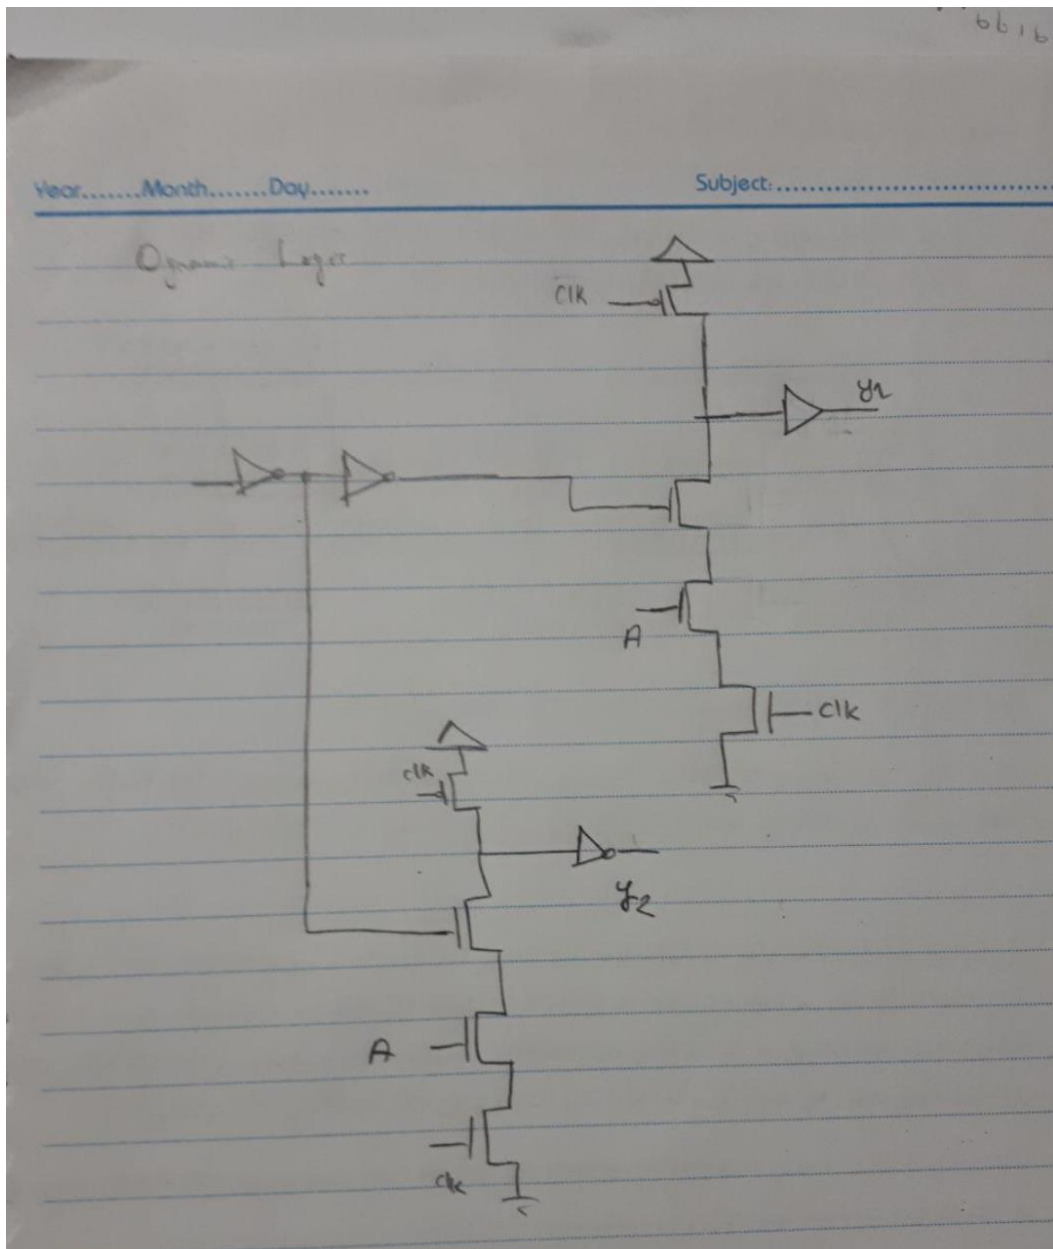 Year.......Month.......Day....... Subject:..................................
Dynamic Logic
Clk
y1
A
Clk
clk
y2
A
clk